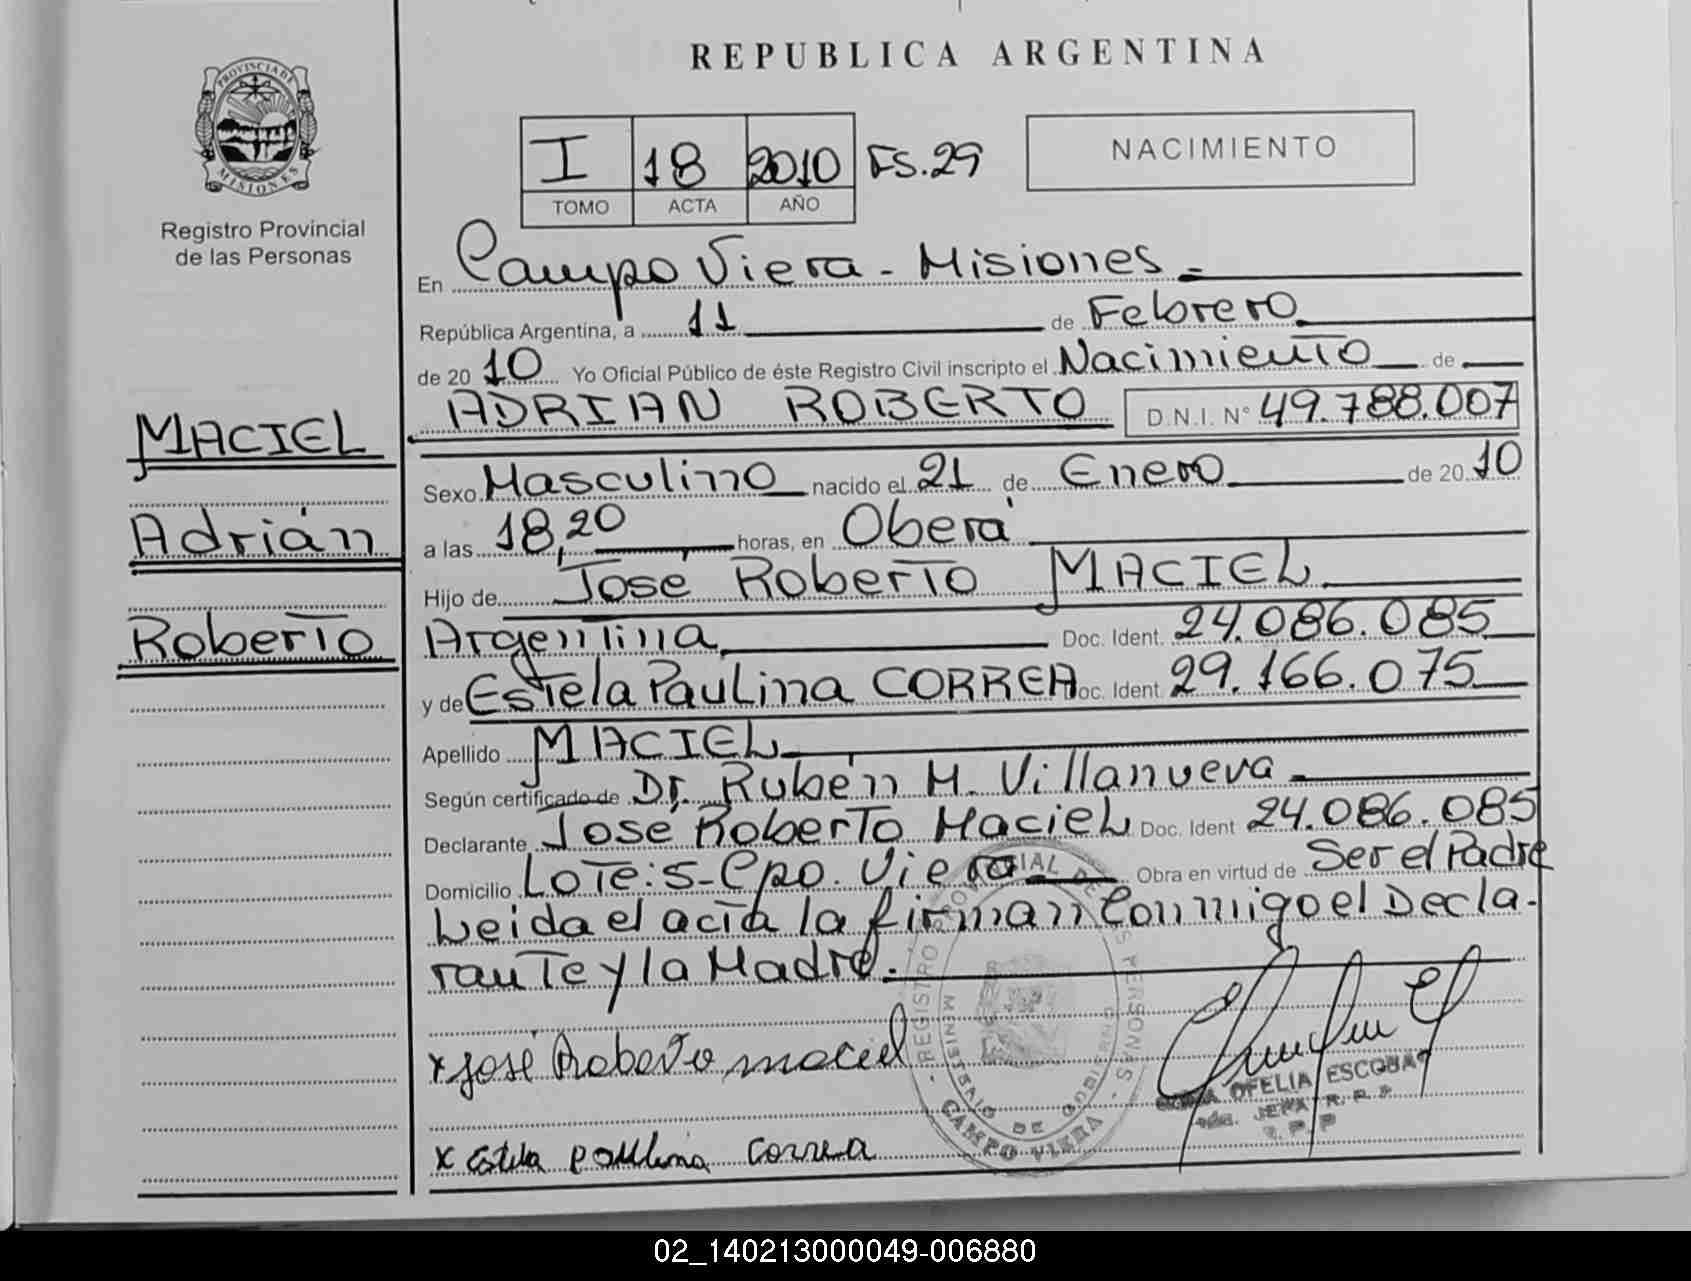 REPUBLICA ARGENTINA
PROVINCIA DE MISIONES
Registro Provincial
de las Personas
I 18 2010 FS.29
TOMO ACTA AÑO
NACIMIENTO
En Campo Viera - Misiones
República Argentina, a 11 de Febrero
de 2010 Yo Oficial Público de éste Registro Civil inscripto el Nacimiento de
ADRIAN ROBERTO D.N.I. N° 49.788.007
MACIEL
Adrián
Roberto
Sexo Masculino nacido el 21 de Enero de 2010
a las 18,20 horas, en Oberá
Hijo de José Roberto MACIEL
Argentina Doc. Ident. 24.086.085
y de Estela Paulina CORREA Doc. Ident. 29.166.075
Apellido MACIEL
Según certificado de Dr. Rubén M. Villanueva
Declarante José Roberto Maciel Doc. Ident 24.086.085
Domicilio Lote:5-Cpo. Viera Obra en virtud de Ser el Padre
Leida el acta la firman Conmigo el Decla-
rante y la Madre.
REGISTRO PROVINCIAL DE LAS PERSONAS
CAMPO VIERA
x José Roberto maciel
OFELIA ESCOBAR
x Estela paullina correa
02_140213000049-006880